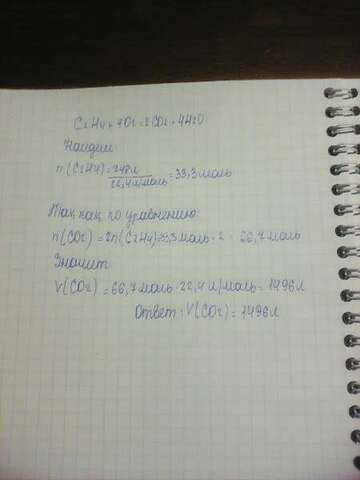 C2H4 + 4O2 = 2CO2 + 4H2O
Найдем
n(C2H4) = 748л
22,4 л/моль = 33,3 моль
Так как по уравнению
n(CO2) = 2n(C2H4) = 33,3 моль · 2 = 66,7 моль
Значит
V(CO2) = 66,7 моль · 22,4 л/моль = 1496 л
Ответ: V(CO2) = 1496 л